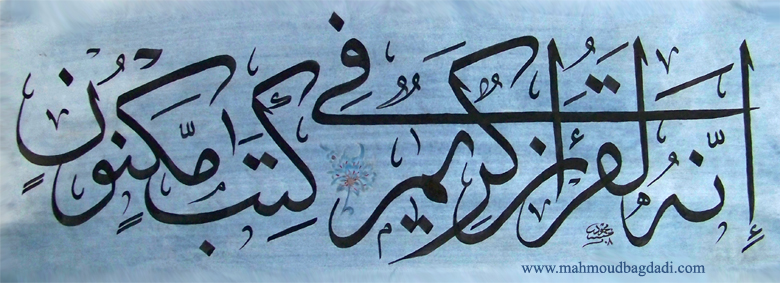 إنه لقرآن كريم في كتب مكنون
www.mahmoudbagdadi.com